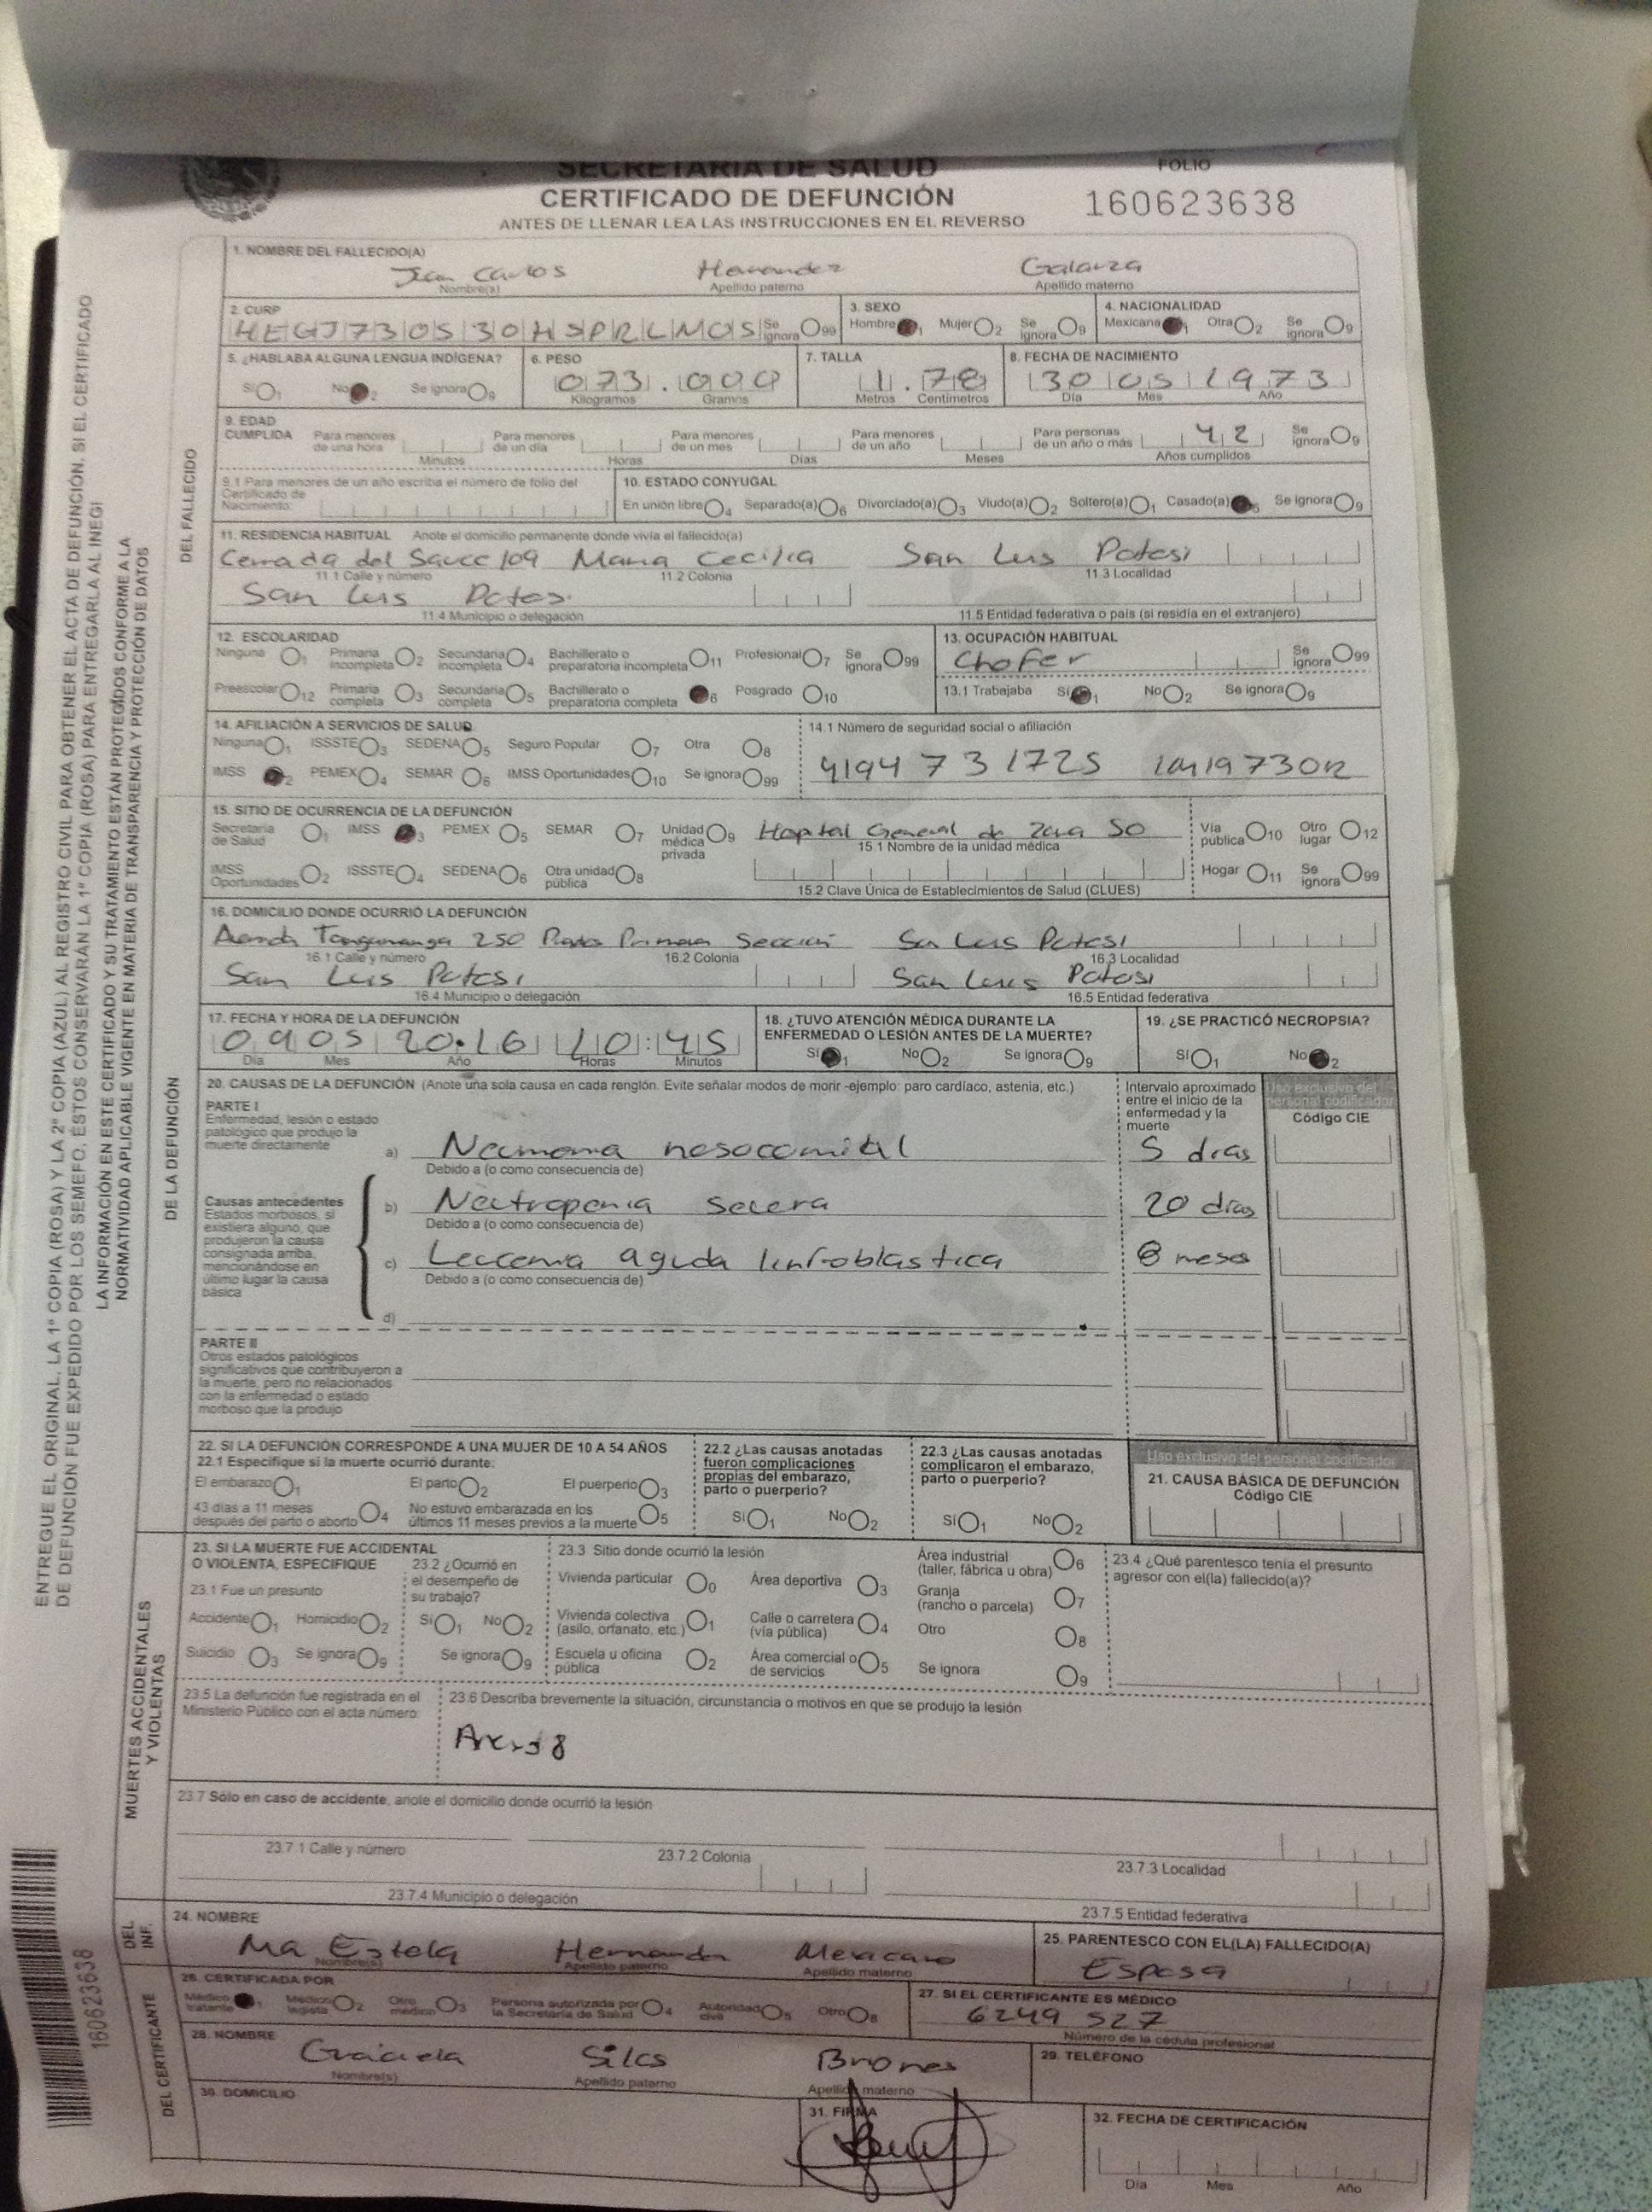 SECRETARÍA DE SALUD
CERTIFICADO DE DEFUNCIÓN
ANTES DE LLENAR LEA LAS INSTRUCCIONES EN EL REVERSO
FOLIO
160623638
ENTREGUE EL ORIGINAL, LA 1ª COPIA (ROSA) Y LA 2ª COPIA (AZUL) AL REGISTRO CIVIL PARA OBTENER EL ACTA DE DEFUNCIÓN. SI EL CERTIFICADO
DE DEFUNCIÓN FUE EXPEDIDO POR LOS SEMEFO, ÉSTOS CONSERVARÁN LA 1ª COPIA (ROSA) PARA ENTREGARLA AL INEGI
LA INFORMACIÓN EN ESTE CERTIFICADO Y SU TRATAMIENTO ESTÁN PROTEGIDOS CONFORME A LA
NORMATIVIDAD APLICABLE VIGENTE EN MATERIA DE TRANSPARENCIA Y PROTECCIÓN DE DATOS
DEL FALLECIDO
1. NOMBRE DEL FALLECIDO(A)
Juan Carlos Hernandez Galarza
Nombre(s) Apellido paterno Apellido materno
2. CURP
HEGJ730530HSPRLM05 Se ignora 99
3. SEXO
Hombre 1 Mujer 2 Se ignora 9
4. NACIONALIDAD
Mexicana 1 Otra 2 Se ignora 9
5. ¿HABLABA ALGUNA LENGUA INDÍGENA?
Sí 1 No 2 Se ignora 9
6. PESO
073.000
Kilogramos Gramos
7. TALLA
1.78
Metros Centímetros
8. FECHA DE NACIMIENTO
30 05 1973
Día Mes Año
9. EDAD CUMPLIDA
Para menores de una hora Minutos
Para menores de un día Horas
Para menores de un mes Días
Para menores de un año Meses
Para personas de un año o más 42 Años cumplidos
Se ignora 9
9.1 Para menores de un año escriba el número de folio del Certificado de Nacimiento:
10. ESTADO CONYUGAL
En unión libre 4 Separado(a) 6 Divorciado(a) 3 Viudo(a) 2 Soltero(a) 1 Casado(a) 5 Se ignora 9
11. RESIDENCIA HABITUAL Anote el domicilio permanente donde vivía el fallecido(a)
Cerrada del Sauce 109 Maria Cecilia San Luis Potosi
11.1 Calle y número 11.2 Colonia 11.3 Localidad
San Luis Potosi
11.4 Municipio o delegación 11.5 Entidad federativa o país (si residía en el extranjero)
12. ESCOLARIDAD
Ninguna 1 Primaria incompleta 2 Secundaria incompleta 4 Bachillerato o preparatoria incompleta 11 Profesional 7 Se ignora 99
Preescolar 12 Primaria completa 3 Secundaria completa 5 Bachillerato o preparatoria completa 6 Posgrado 10
13. OCUPACIÓN HABITUAL
Chofer Se ignora 99
13.1 Trabajaba Sí 1 No 2 Se ignora 9
14. AFILIACIÓN A SERVICIOS DE SALUD
Ninguna 1 ISSSTE 3 SEDENA 5 Seguro Popular 7 Otra 8
IMSS 2 PEMEX 4 SEMAR 6 IMSS Oportunidades 10 Se ignora 99
14.1 Número de seguridad social o afiliación
4194 73 1725 1M1973OR
15. SITIO DE OCURRENCIA DE LA DEFUNCIÓN
Secretaría de Salud 1 IMSS 3 PEMEX 5 SEMAR 7 Unidad médica privada 9
Hospital General de Zona 50
15.1 Nombre de la unidad médica
Vía pública 10 Otro lugar 12
IMSS Oportunidades 2 ISSSTE 4 SEDENA 6 Otra unidad pública 8
15.2 Clave Única de Establecimientos de Salud (CLUES)
Hogar 11 Se ignora 99
DE LA DEFUNCIÓN
16. DOMICILIO DONDE OCURRIÓ LA DEFUNCIÓN
Tangamanga 250 Prados Primera Seccion San Luis Potosi
16.1 Calle y número 16.2 Colonia 16.3 Localidad
San Luis Potosi San Luis Potosi
16.4 Municipio o delegación 16.5 Entidad federativa
17. FECHA Y HORA DE LA DEFUNCIÓN
09 05 2016 10:45
Día Mes Año Horas Minutos
18. ¿TUVO ATENCIÓN MÉDICA DURANTE LA ENFERMEDAD O LESIÓN ANTES DE LA MUERTE?
Sí 1 No 2 Se ignora 9
19. ¿SE PRACTICÓ NECROPSIA?
Sí 1 No 2
20. CAUSAS DE LA DEFUNCIÓN (Anote una sola causa en cada renglón. Evite señalar modos de morir -ejemplo: paro cardíaco, astenia, etc.)
Intervalo aproximado entre el inicio de la enfermedad y la muerte
Uso exclusivo del personal codificador
Código CIE
PARTE I
Enfermedad, lesión o estado patológico que produjo la muerte directamente
a) Neumonia nosocomial 5 dias
Debido a (o como consecuencia de)
Causas antecedentes
Estados morbosos, si existiera alguno, que produjeron la causa consignada arriba, mencionándose en último lugar la causa básica
b) Neutropenia severa 20 dias
Debido a (o como consecuencia de)
c) Leucemia aguda linfoblastica 8 meses
Debido a (o como consecuencia de)
d)
PARTE II
Otros estados patológicos significativos que contribuyeron a la muerte, pero no relacionados con la enfermedad o estado morboso que la produjo
22. SI LA DEFUNCIÓN CORRESPONDE A UNA MUJER DE 10 A 54 AÑOS
22.1 Especifique si la muerte ocurrió durante:
El embarazo 1 El parto 2 El puerperio 3
43 días a 11 meses después del parto o aborto 4 No estuvo embarazada en los últimos 11 meses previos a la muerte 5
22.2 ¿Las causas anotadas fueron complicaciones propias del embarazo, parto o puerperio?
Sí 1 No 2
22.3 ¿Las causas anotadas complicaron el embarazo, parto o puerperio?
Sí 1 No 2
Uso exclusivo del personal codificador
21. CAUSA BÁSICA DE DEFUNCIÓN
Código CIE
MUERTES ACCIDENTALES Y VIOLENTAS
23. SI LA MUERTE FUE ACCIDENTAL O VIOLENTA, ESPECIFIQUE
23.1 Fue un presunto
Accidente 1 Homicidio 2
Suicidio 3 Se ignora 9
23.2 ¿Ocurrió en el desempeño de su trabajo?
Sí 1 No 2
Se ignora 9
23.3 Sitio donde ocurrió la lesión
Vivienda particular 0 Área deportiva 3 Área industrial (taller, fábrica u obra) 6
Vivienda colectiva (asilo, orfanato, etc.) 1 Calle o carretera (vía pública) 4 Granja (rancho o parcela) 7
Otro 8
Escuela u oficina pública 2 Área comercial o de servicios 5 Se ignora 9
23.4 ¿Qué parentesco tenía el presunto agresor con el(la) fallecido(a)?
23.5 La defunción fue registrada en el Ministerio Público con el acta número:
23.6 Describa brevemente la situación, circunstancia o motivos en que se produjo la lesión
23.7 Sólo en caso de accidente, anote el domicilio donde ocurrió la lesión
23.7.1 Calle y número 23.7.2 Colonia 23.7.3 Localidad
23.7.4 Municipio o delegación 23.7.5 Entidad federativa
DEL INF.
24. NOMBRE
Ma Estela Hernandez Mexicano
Nombre(s) Apellido paterno Apellido materno
25. PARENTESCO CON EL(LA) FALLECIDO(A)
Esposa
DEL CERTIFICANTE
26. CERTIFICADA POR
Médico tratante 1 Médico legista 2 Otro médico 3 Persona autorizada por la Secretaría de Salud 4 Autoridad civil 5 Otro 8
27. SI EL CERTIFICANTE ES MÉDICO
6249527
Número de la cédula profesional
28. NOMBRE
Graciela Silos Briones
Nombre(s) Apellido paterno Apellido materno
29. TELÉFONO
30. DOMICILIO
31. FIRMA
32. FECHA DE CERTIFICACIÓN
Día Mes Año
160623638